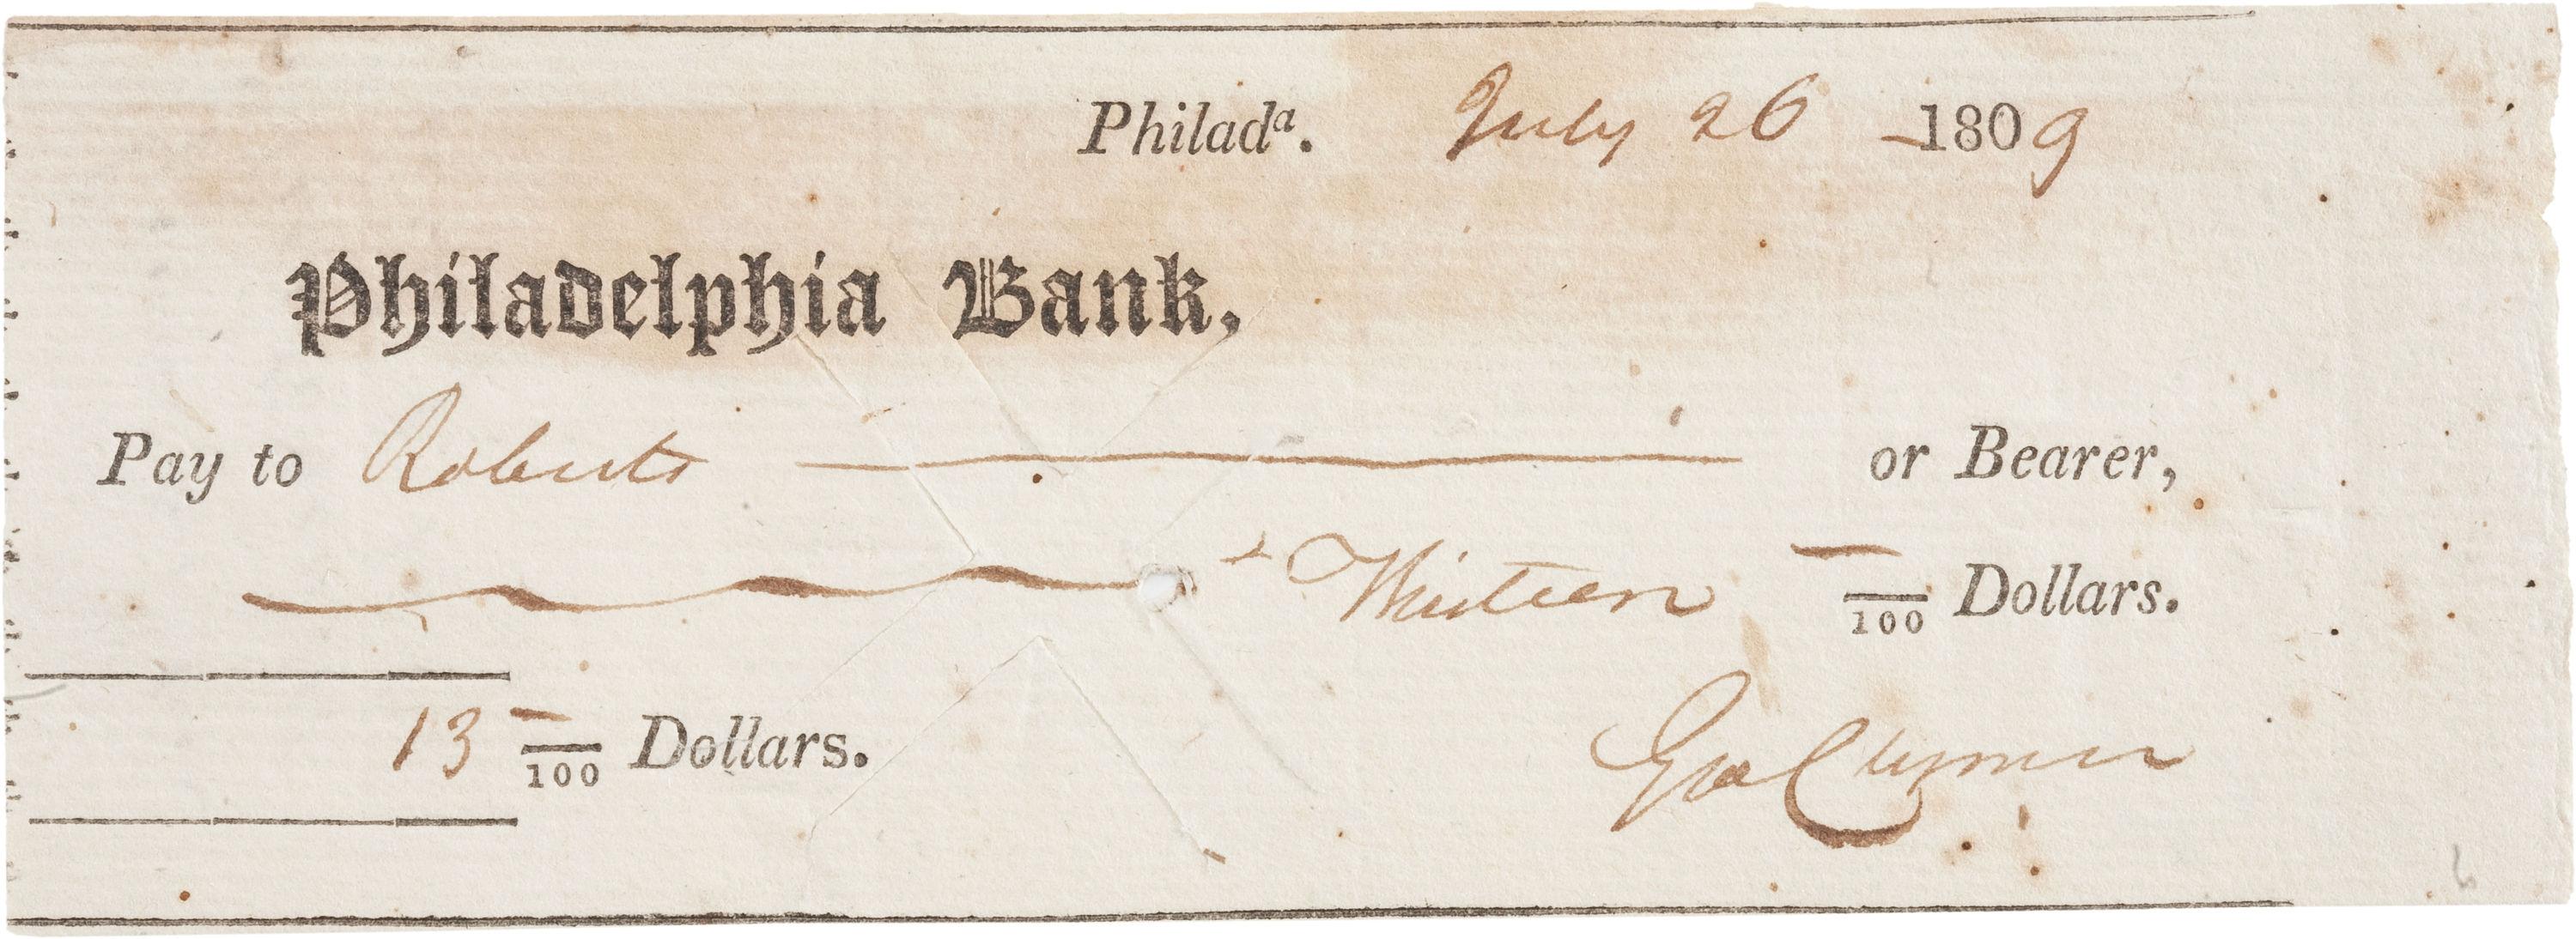 Philadᵃ. July 26 1809
Philadelphia Bank,
Pay to Roberts — or Bearer,
Thirteen —/100 Dollars.
13 —/100 Dollars.
Geo Clymer